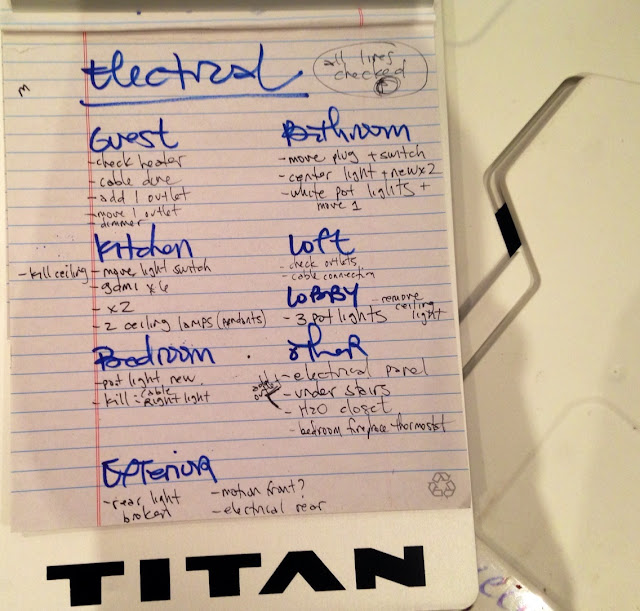 Electrical
all lines
checked
Guest
- check heater
- cable done
- add 1 outlet
- move 1 outlet
dimmer
Bathroom
- move plug + switch
- center light + new x2
- white pot lights +
move 1
Kitchen
- kill ceiling
- move light switch
- x 6
- x2
- 2 ceiling lamps (pendants)
Loft
- check outlets
- cable connection
LOBBY
- remove
ceiling
light
- 3 pot lights
Bedroom
- pot light new
- kill : cable
Right light
other
- electrical panel
- under stairs
- H2O closet
- bedroom fireplace thermostat
Exterior
- rear light
broken
- motion front?
- electrical rear
TITAN